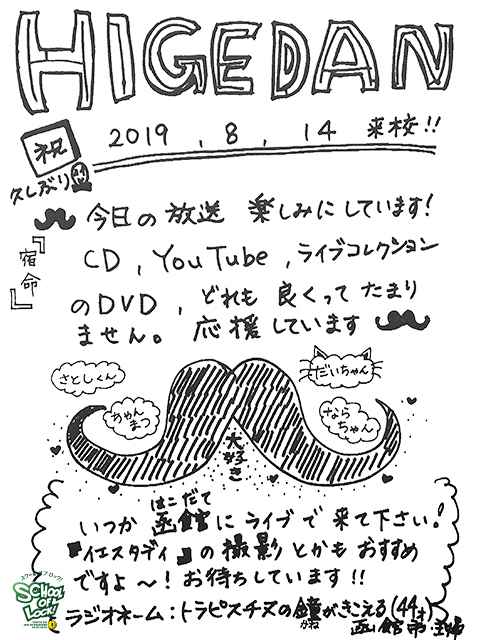 HIGEDAN
祝
2019 , 8 , 14 来校!!
久しぶり
今日の放送 楽しみにしています!
『宿命』
CD , YouTube , ライブコレクション
のDVD , どれも 良くって たまり
ません。 応援しています
さとしくん
だいちゃん
ちゃんまつ
ならちゃん
大好き
はこだて
いつか 函館に ライブで 来て下さい!
『イエスタデイ』の 撮影とかも おすすめ
ですよ〜! お待ちしています!!
スクールオブロック!
SCHOOL OF LOCK!
ラジオネーム:トラピスチヌの鐘がきこえる(44才)
かね
函館市 主婦